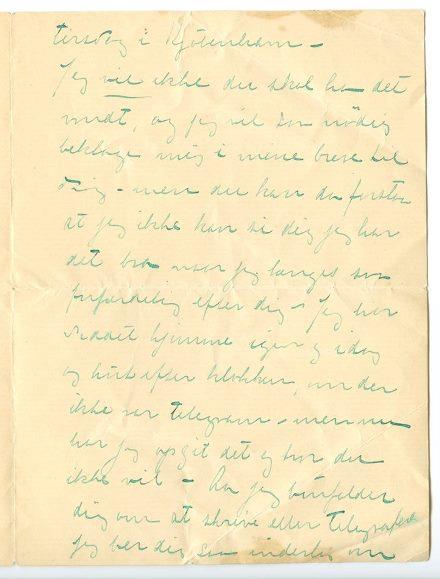 tirsdag i Kjøbenham –
Jeg vil ikke du skal ha det
vondt, og jeg vil saa nødig
beklage mig i mine breve til
dig – men du kan da forstaa
at jeg ikke kan si dig jeg har
det bra naar jeg længes saa
forfærdelig efter dig – Jeg har
siddet hjemme igaar og idag
og hørt efter klokken, om der
ikke var telegram – men nu
har jeg opgit det og tror du
ikke vil – Aa jeg bønfalder
dig om at skrive eller telegrafere
jeg ber dig saa inderlig om